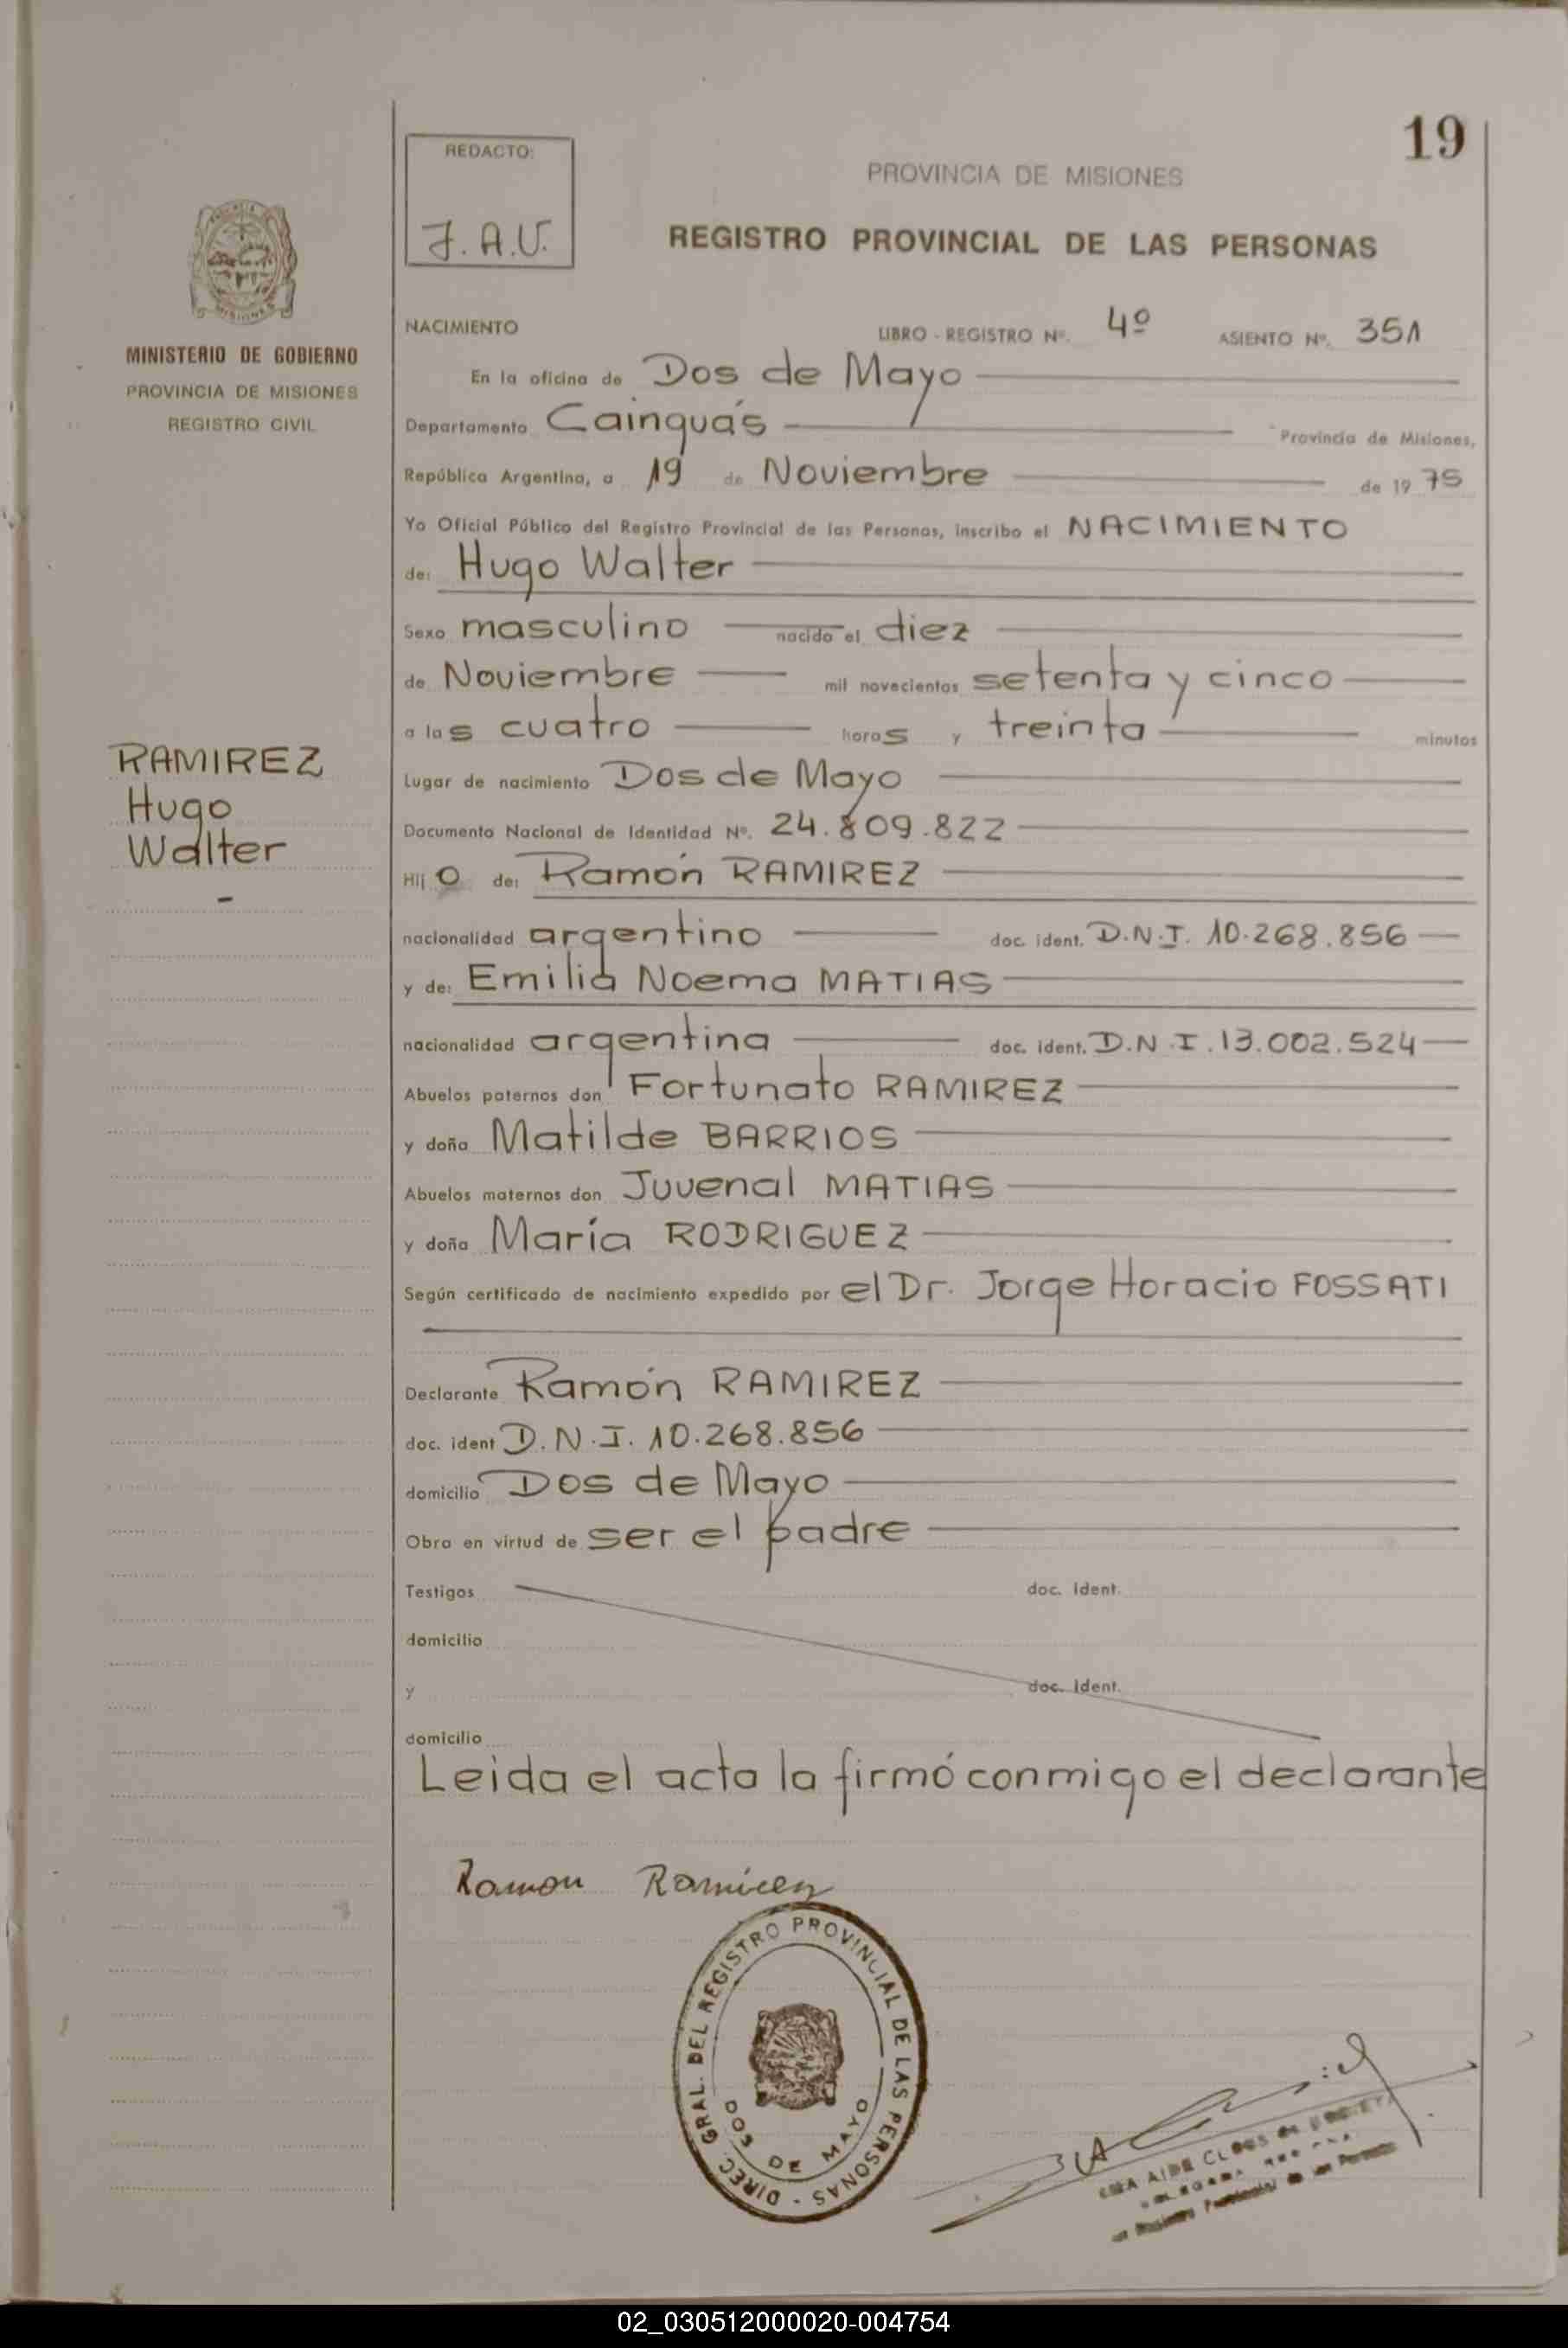 19
REDACTO:
J.A.V.
PROVINCIA DE MISIONES
REGISTRO PROVINCIAL DE LAS PERSONAS
MINISTERIO DE GOBIERNO
PROVINCIA DE MISIONES
REGISTRO CIVIL
RAMIREZ
Hugo
Walter
NACIMIENTO LIBRO - REGISTRO Nº. 4º ASIENTO Nº. 351
En la oficina de Dos de Mayo
Departamento Cainguás Provincia de Misiones,
República Argentina, a 19 de Noviembre de 1975
Yo Oficial Público del Registro Provincial de las Personas, inscribo el NACIMIENTO
de: Hugo Walter
Sexo masculino nacido el diez
de Noviembre mil novecientos setenta y cinco
a las cuatro horas y treinta minutos
Lugar de nacimiento Dos de Mayo
Documento Nacional de Identidad Nº. 24.809.822
Hijo de: Ramón RAMIREZ
nacionalidad argentino doc. ident. D.N.I. 10.268.856
y de: Emilia Noema MATIAS
nacionalidad argentina doc. ident. D.N.I. 13.002.524
Abuelos paternos don Fortunato RAMIREZ
y doña Matilde BARRIOS
Abuelos maternos don Juvenal MATIAS
y doña María RODRIGUEZ
Según certificado de nacimiento expedido por el Dr. Jorge Horacio FOSSATI
Declarante Ramón RAMIREZ
doc. ident D.N.I. 10.268.856
domicilio Dos de Mayo
Obra en virtud de ser el padre
Testigos doc. ident.
domicilio
y doc. ident.
domicilio
Leida el acta la firmó conmigo el declarante
Ramon Ramirez
DIREC. GRAL. DEL REGISTRO PROVINCIAL DE LAS PERSONAS -
DOS DE MAYO
02_030512000020-004754